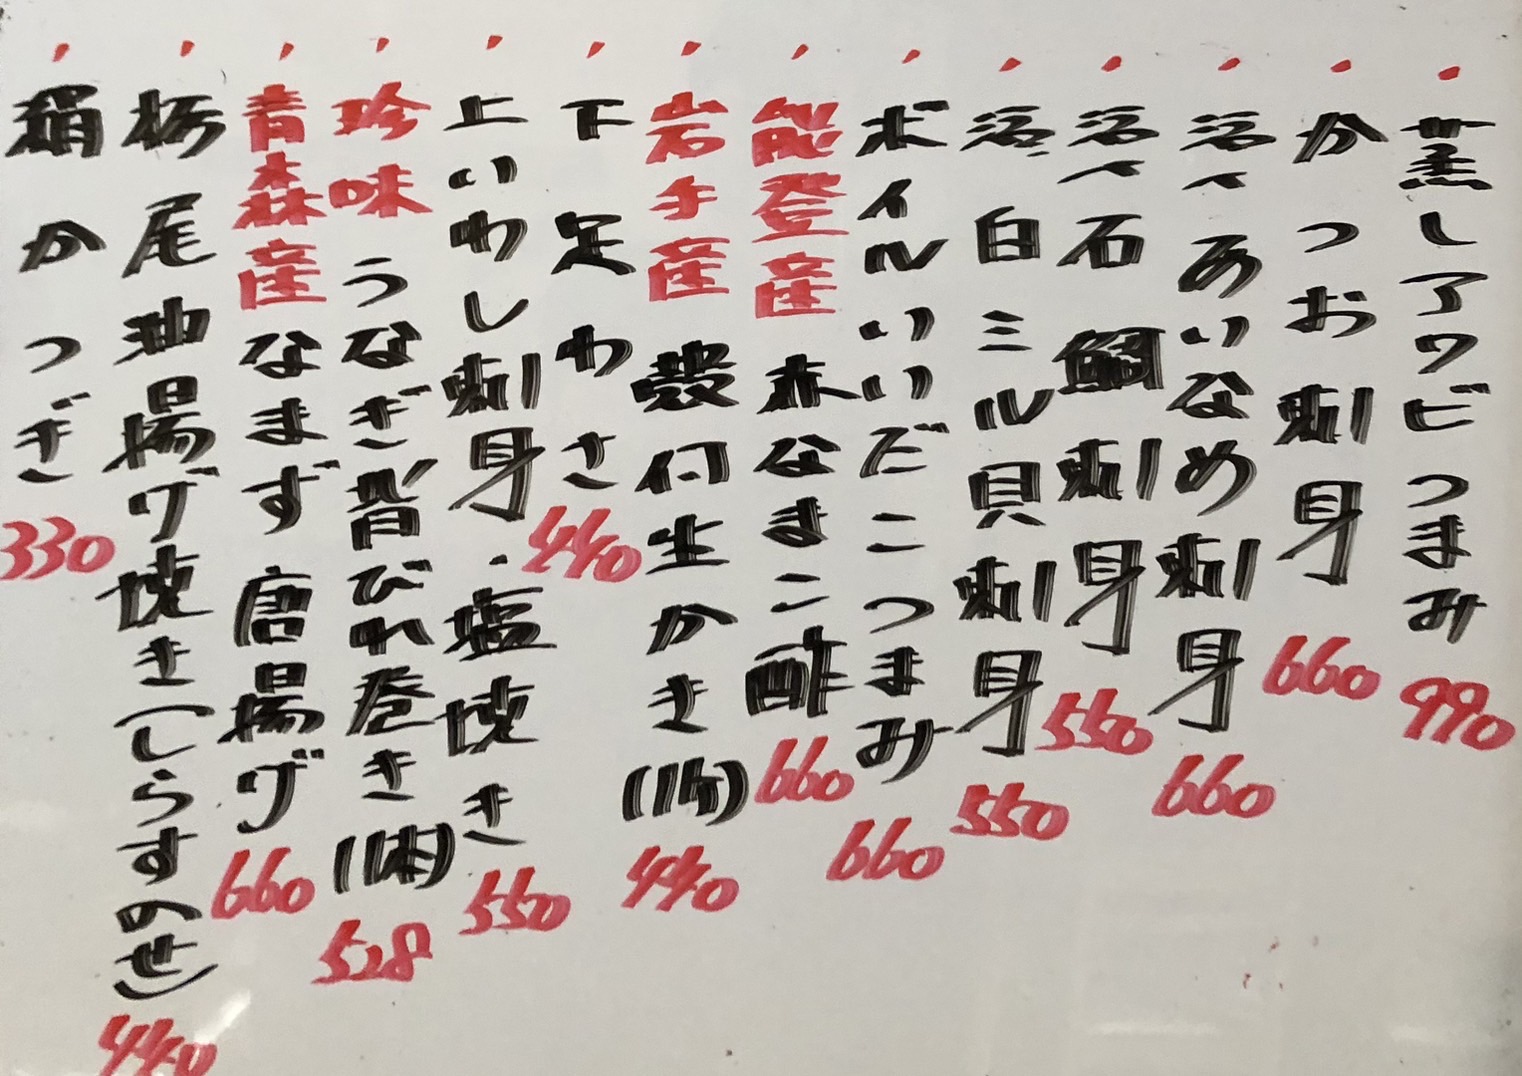 ・蒸しアワビつまみ 990
・かつお刺身 660
・活〆あいなめ刺身 660
・活〆石鯛刺身 550
・活白ミル貝刺身 550
・ボイルいいだこつまみ 660
・能登産 赤なまこ酢 660
・岩手産 殻付生かき(1ヶ) 440
・下足わさ 440
・上いわし刺身・塩焼き 550
・珍味 うなぎ背びれ巻き(1本) 528
・青森産なまず唐揚げ 660
・栃尾油揚げ焼き(しらすのせ) 440
・絹かつぎ 330